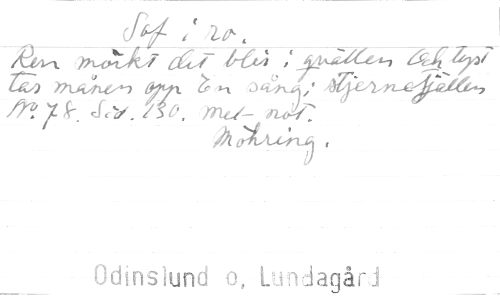 Sof i ro.
Ren mörkt det blir i qvällen Och tyst
tar månen opp En sång i stjernetjällen
No. 78. Sid. 130. med not.
Möhring.
Odinslund o, Lundagård